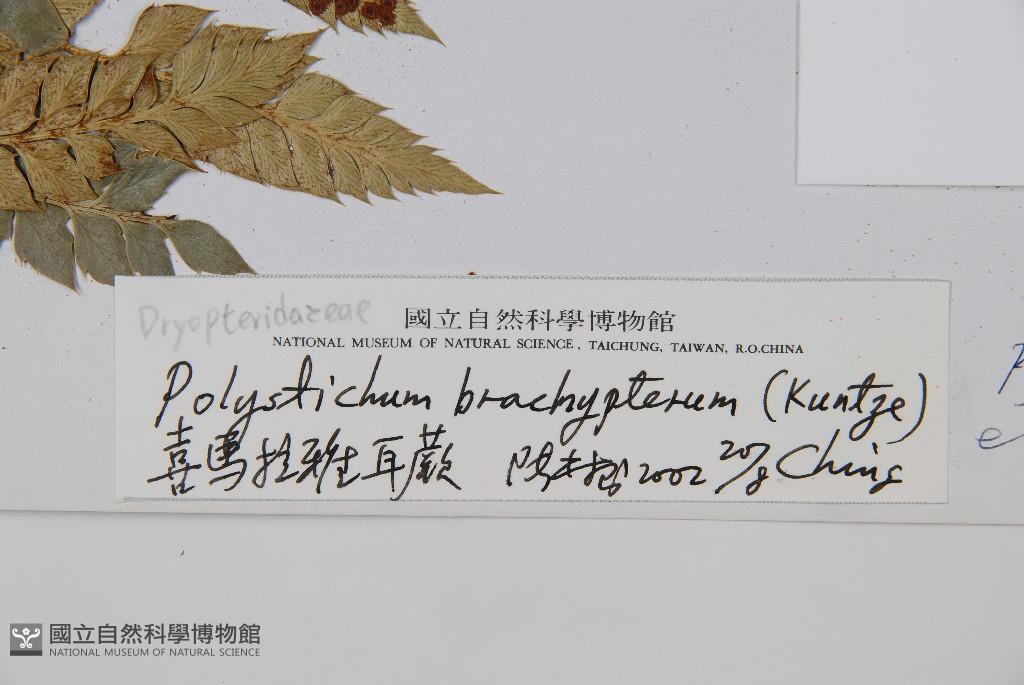 Dryopteridaceae
國立自然科學博物館
NATIONAL MUSEUM OF NATURAL SCIENCE, TAICHUNG, TAIWAN, R.O.CHINA
Polystichum brachypterum (Kuntze)
喜馬拉雅耳蕨 2002 20/8 Ching
國立自然科學博物館
NATIONAL MUSEUM OF NATURAL SCIENCE